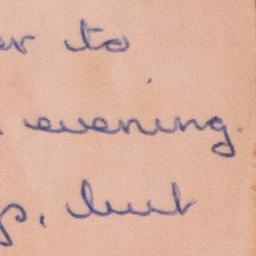 to
evening.
p. but